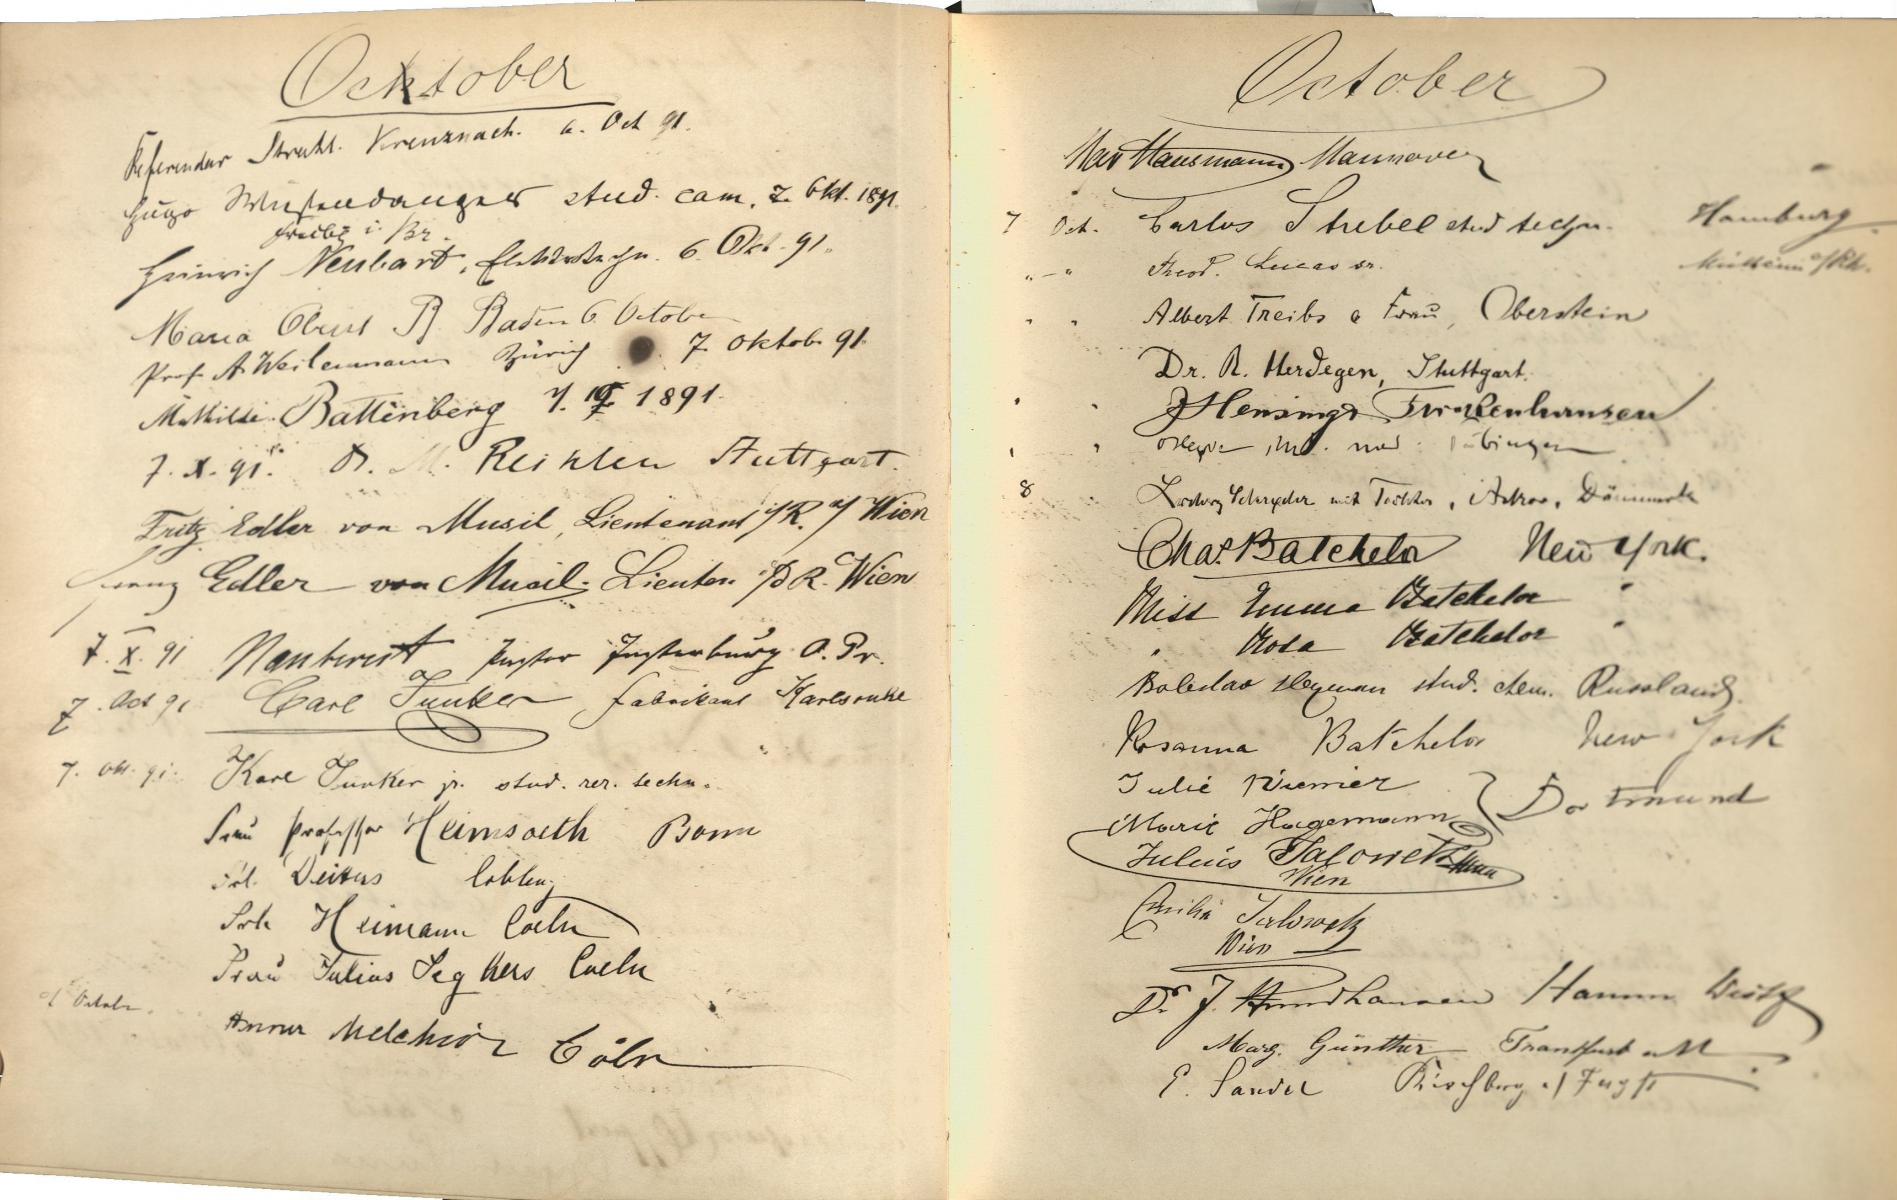 October
Referendar Strahl. Kreuznach. 6. Oct 91.
Hugo stud. cam. 7. Okt. 1891.
Freibg i. Br.
Heinrich Neubart, Elektrotechn. 6. Okt. 91.
Maria Obrist B. Baden 6 October
Prof. A. Weilenmann Zürich 7. Oktob. 91.
Mathilde Battenberg 7. 1891.
7. X. 91. Dr. M. Reihlen Stuttgart.
Fritz Edler von Musil, Lieutenant i/R. a/ Wien
Franz Edler von Musil. Lieuten. i/R. Wien
7. X. 91 Insterburg O. Pr.
7. Oct 91 Carl Junker, Fabrikant Karlsruhe
7. Okt. 91. Karl Junker jr. stud. rer. techn.
Frau Professor Heimsoeth Bonn
Frl. Deiters Coblenz
Frl. Heimann Coeln
Frau Julius Seghers Coeln
October. Anna Melchior Cöln
October
Max Hausmann Hannover
7 Oct. Carlos Strebel stud techn. Hamburg
" — " Theod. Lucas sr. Mülheim a/Rh.
" " Albert Treibs & Frau, Oberstein
Dr. R. Herdegen, Stuttgart.
" " Frankenhausen
" " med. Tübingen
8 Ludwig Schrøder mit Tochter, Askov, Dänemark
Chas. Batchelor New York.
Miss Emma Batchelor "
" Rosa Batchelor "
Boleslav Heyman stud. chem. Russland.
Rosanna Batchelor New York
Julie Wiemer } Dortmund
Marie Hagemann
Julius Jalowetz
Wien
Emilie Jalowetz
Wien
Dr. J. Hundhausen Hamm Westf
Marg. Günther Frankfurt a M
E. Sandel Kirchberg a/ Jagst